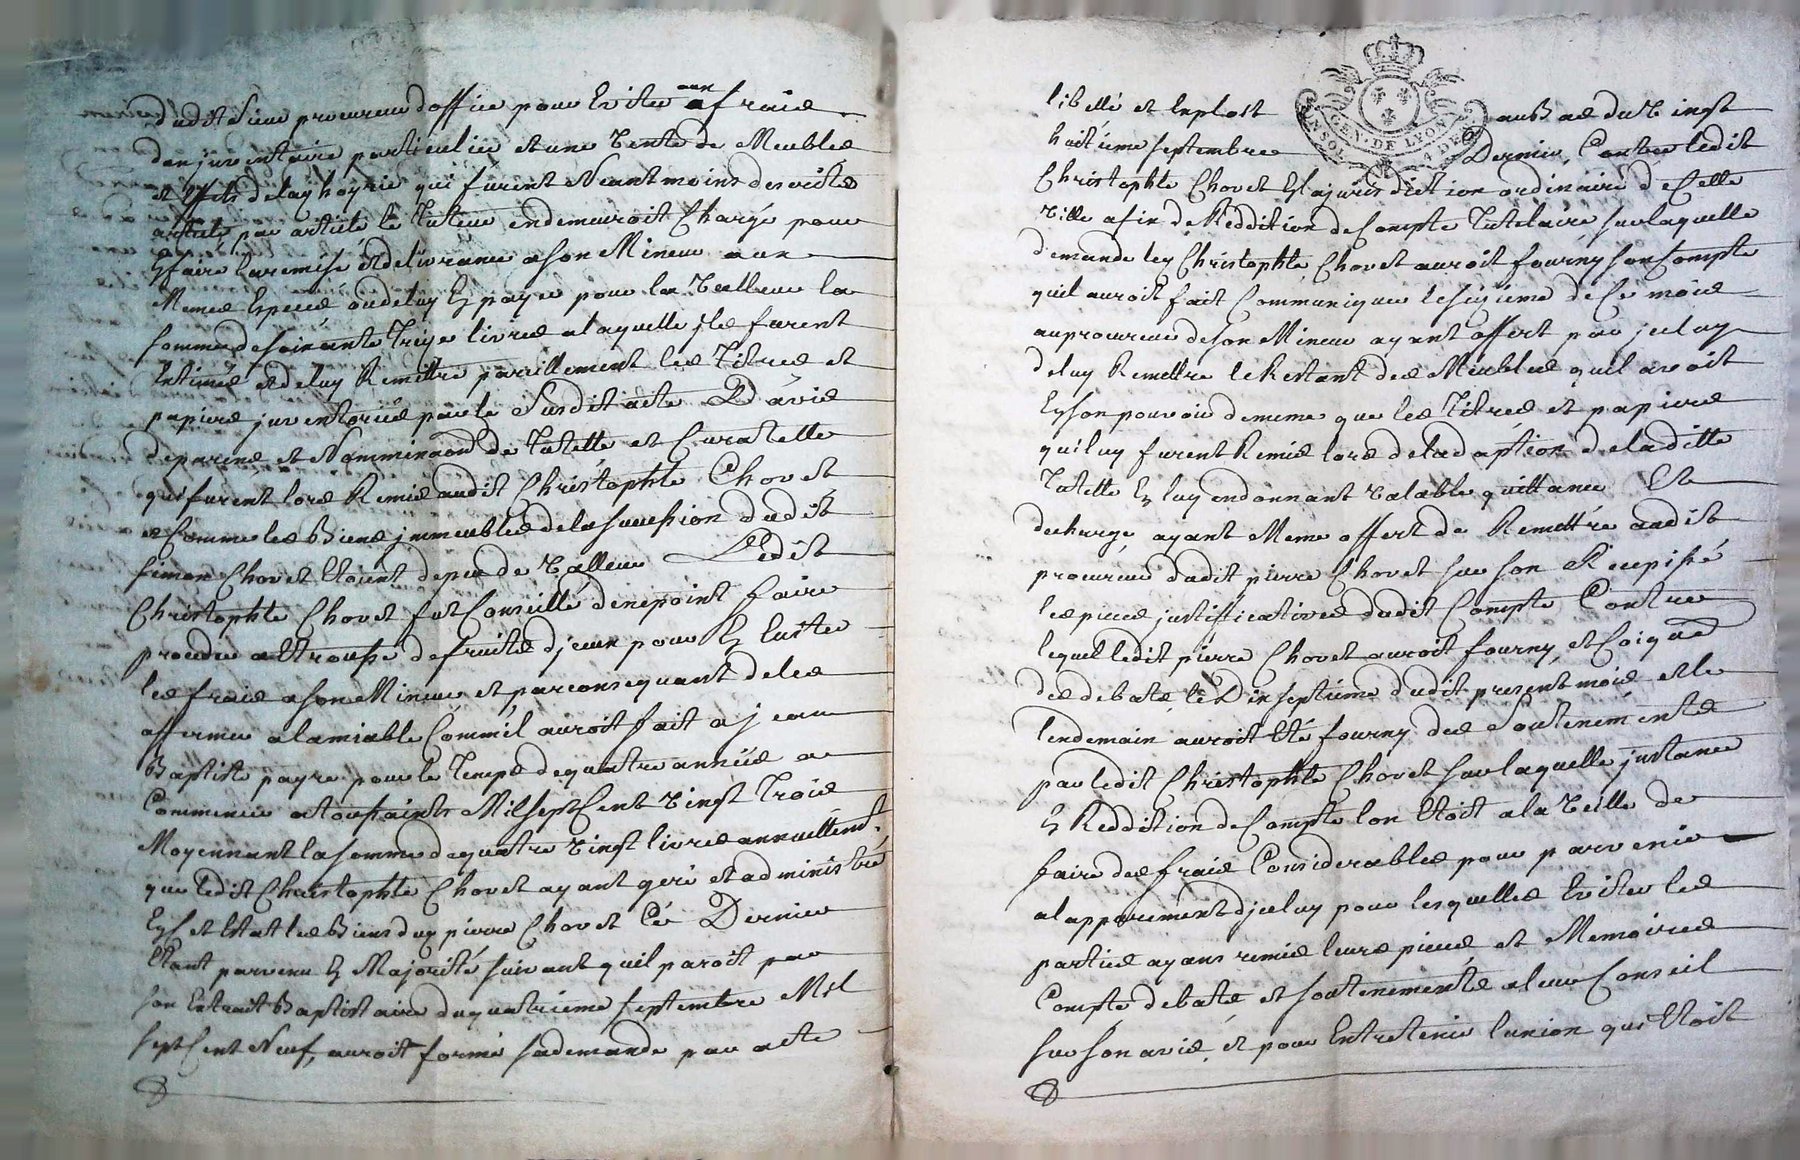 dudit Sieur procureur doffice pour Eviter aux fraix
dun juventaire particulier et une Vente de Meubles
et effets de lay hoyrie qui furent Neantmoins descrites
article par article le Tuteur en demeuroit Chargé pour
En faire la remise et delivrance a son Mineur aux
Memes Especes ou de luy En payer pour la Valleur la
somme de soixante Treize livres a laquelle ils furent
Estimés et de luy Remettre pareillement les Titres et
papiers juventoriés par le Susdit acte D'avis
de parens et Nommination de Tutelle et Curatelle
qui furent lors Remis audit Christophle Chovet
et Comme les Biens jmmeubles de la succession dudit
simon Chovet Etoient de peu de Valleur Ledit
Christophle Chovet fut Conseillé de ne point faire
proceder a Etrousse de fruits djceux pour En Eviter
les frais a son Mineur et par consequant de les
affermer a lamiable Comm'il auroit fait a jean
Baptiste payre pour le Temps de quatre années a
Commencer a toussaints Mil sept Cent Vingt Trois
Moyennant la somme de quatre Vingt livres annuellemt.
que ledit Christophle Chovet ayant geré et administré
En cet Etat les Biens du pierre Chovet Cé Dernier
Etant parvenu En Majorité suivant quil paroit par
son Extrait Baptistaire du quatrieme septembre Mil
sept Cent Neuf, auroit formé sa demande par acte
libellé et Exploit aubas du Vingt
huitieme septembre Dernier, Contre ledit
Christophle Chovet En la jurisdiction ordinaire de Cette
Ville afin de Reddition de Compte Tutelaire sur laquelle
demande ley Christophle Chovet auroit fourny son Compte
quil auroit fait Communiquer le sizieme de Ce mois
au procureur de son Mineur ayant offert par jceluy
de luy Remettre le Restant des Meubles quil avoit
En son pouvoir de meme que les Titres et papiers
qui luy furent Remis lors de lad'aption de laditte
Tutelle En luy en donnant Valable quittance Et
decharge ayant Meme offert de Remettre audit
procureur dudit pierre Chovet sur son Recepissé
les pieces justifficatives dudit Compte Contre
lequel ledit pierre Chovet auroit fourny et Coigné
des debats le Dixseptieme dudit present mois et le
lendemain auroit Eté fourny des Soutenements
par ledit Christophle Chovet sur laquelle jnstance
En Reddition de Compte lon Etoit a la Veille de
faire des frais Considerables pour parvenir
al apparement djceluy pour lesquelles Eviter les
parties ayans remis leurs pieces et Memoires
Compte debats et soutenements a leur Conseil
sur son avis, et pour Entretenir lunion qui Etoit
GEN. DE LYON